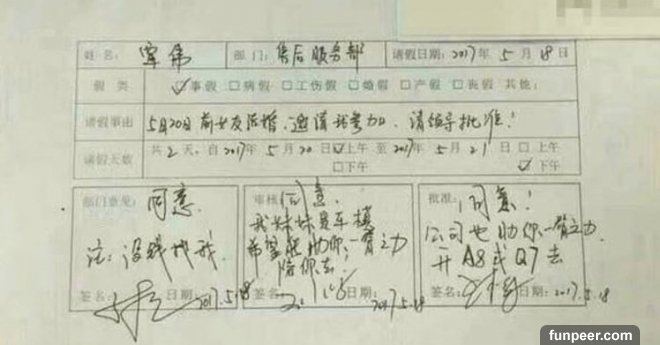 姓名: 军伟 部门: 售后服务部 请假日期: 2017年5月18日
假类 ☑事假 □病假 □工伤假 □婚假 □产假 □丧假 其他:
请假事由 5月20日前女友结婚、邀请我参加、请领导批准!
请假天数 共2天, 自2017年5月20日☑上午 □下午 至2017年5月21日□上午 ☑下午
部门意见: 同意.
注: 没钱找我.
签名: 日期: 2017.5.18
审核: 同意.
我妹妹是车模
希望能助你一臂之力
陪你去.
签名: 日期: 2017.5.18
批准: 同意!
公司也助你一臂之力.
开A8或Q7去
签名: 日期: 2017.5.18
funpeer.com